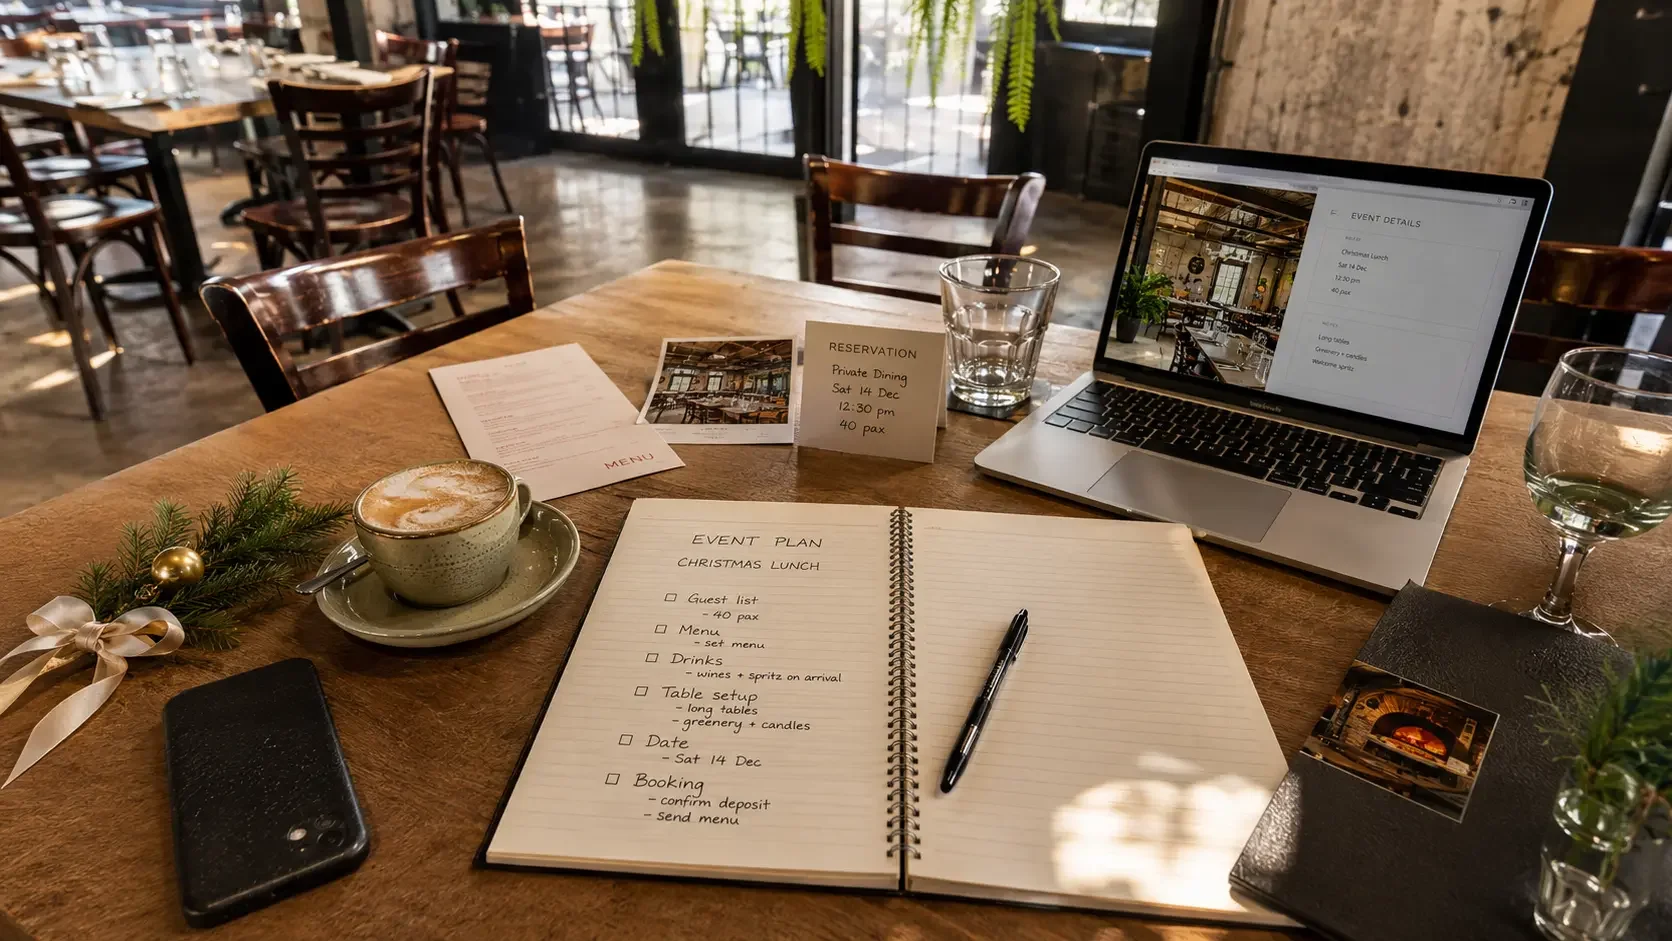 MENU
RESERVATION
Private Dining
Sat 14 Dec
12:30 pm
40 pax
EVENT DETAILS
Christmas Lunch
Sat 14 Dec
12:30 pm
40 pax
Long tables
Greenery + candles
Welcome spritz
EVENT PLAN
CHRISTMAS LUNCH
Guest list
- 40 pax
Menu
- set menu
Drinks
- wines + spritz on arrival
Table setup
- long tables
- greenery + candles
Date
- Sat 14 Dec
Booking
- confirm deposit
- send menu